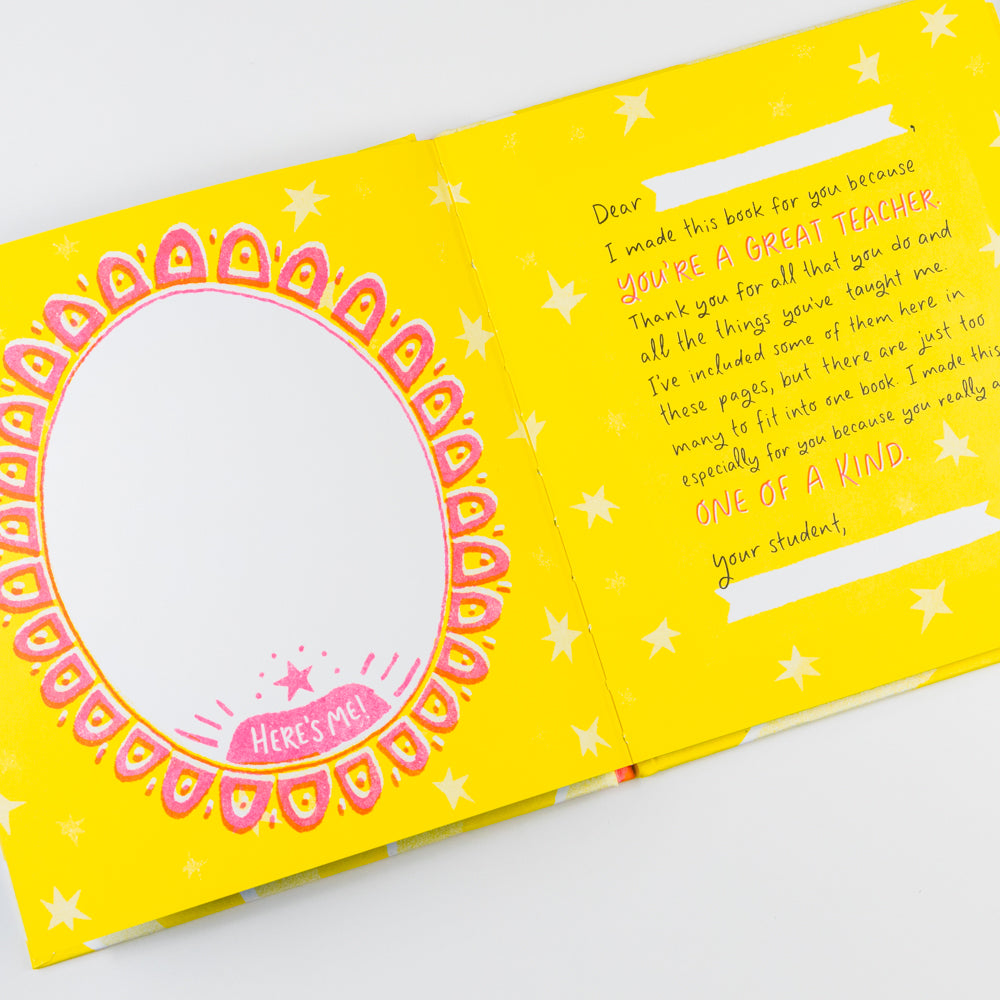 HERE'S ME!
Dear ,
I made this book for you because
YOU'RE A GREAT TEACHER.
Thank you for all that you do and
all the things you've taught me.
I've included some of them here in
these pages, but there are just too
many to fit into one book. I made this
especially for you because you really a
ONE OF A KIND.
Your student,